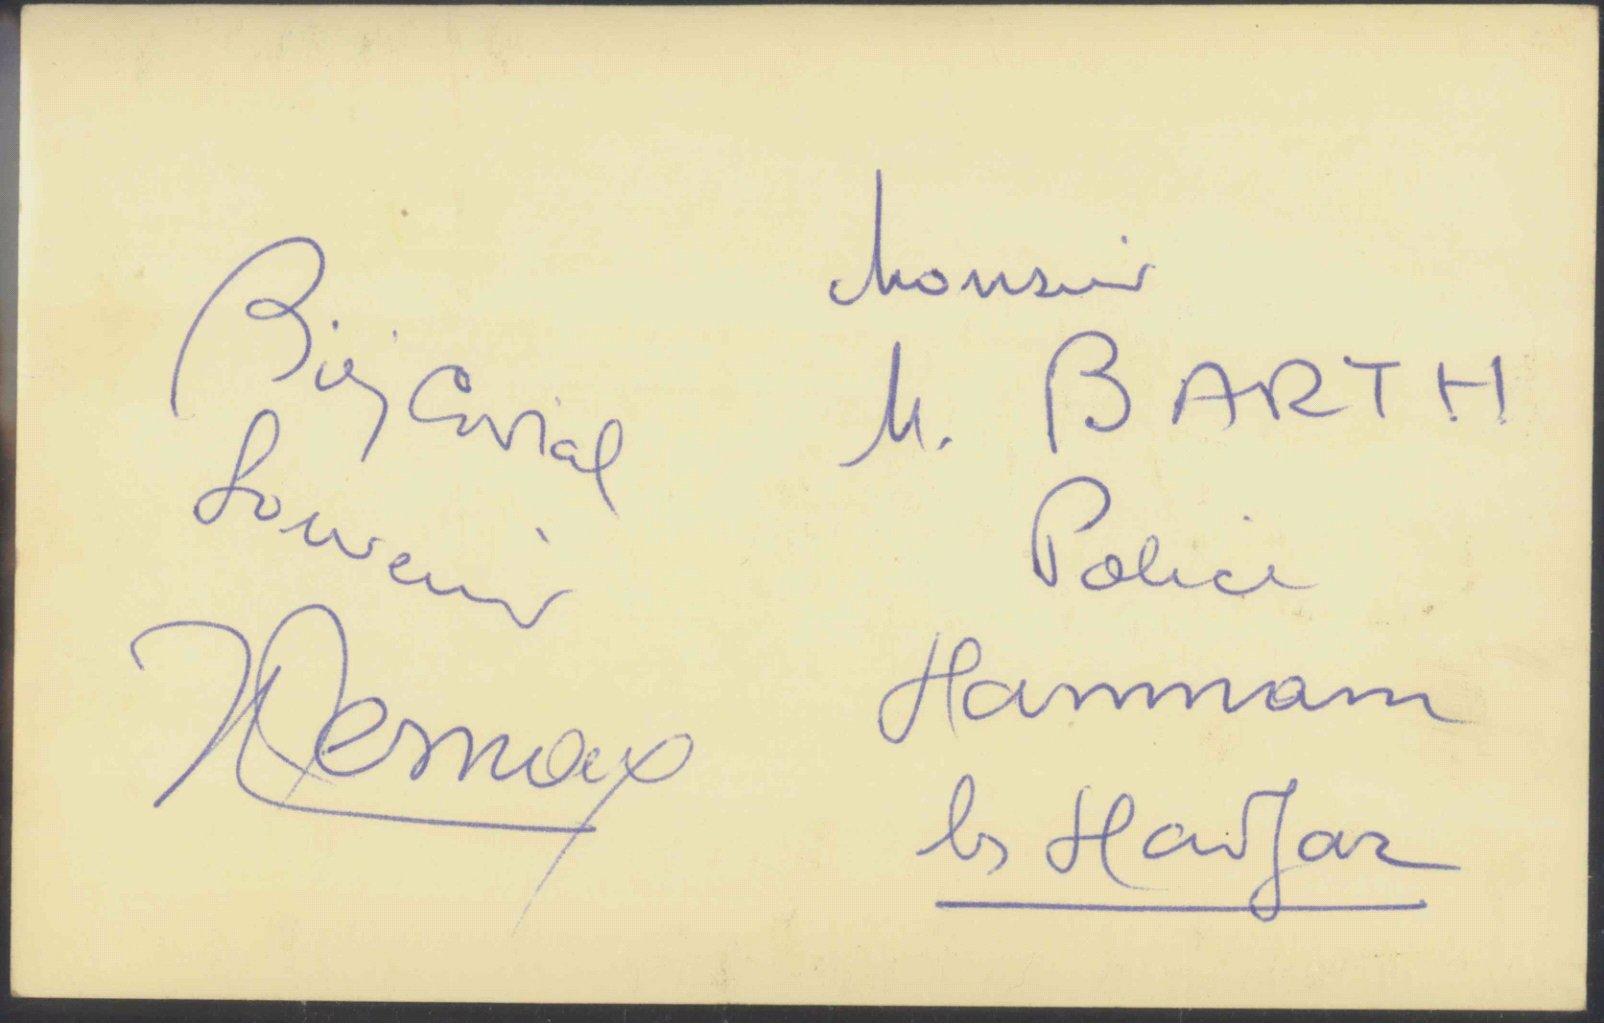 Bien Cordial
Souvenir
Monsieur
M. BARTH
Police
Hammam
les Hadjar